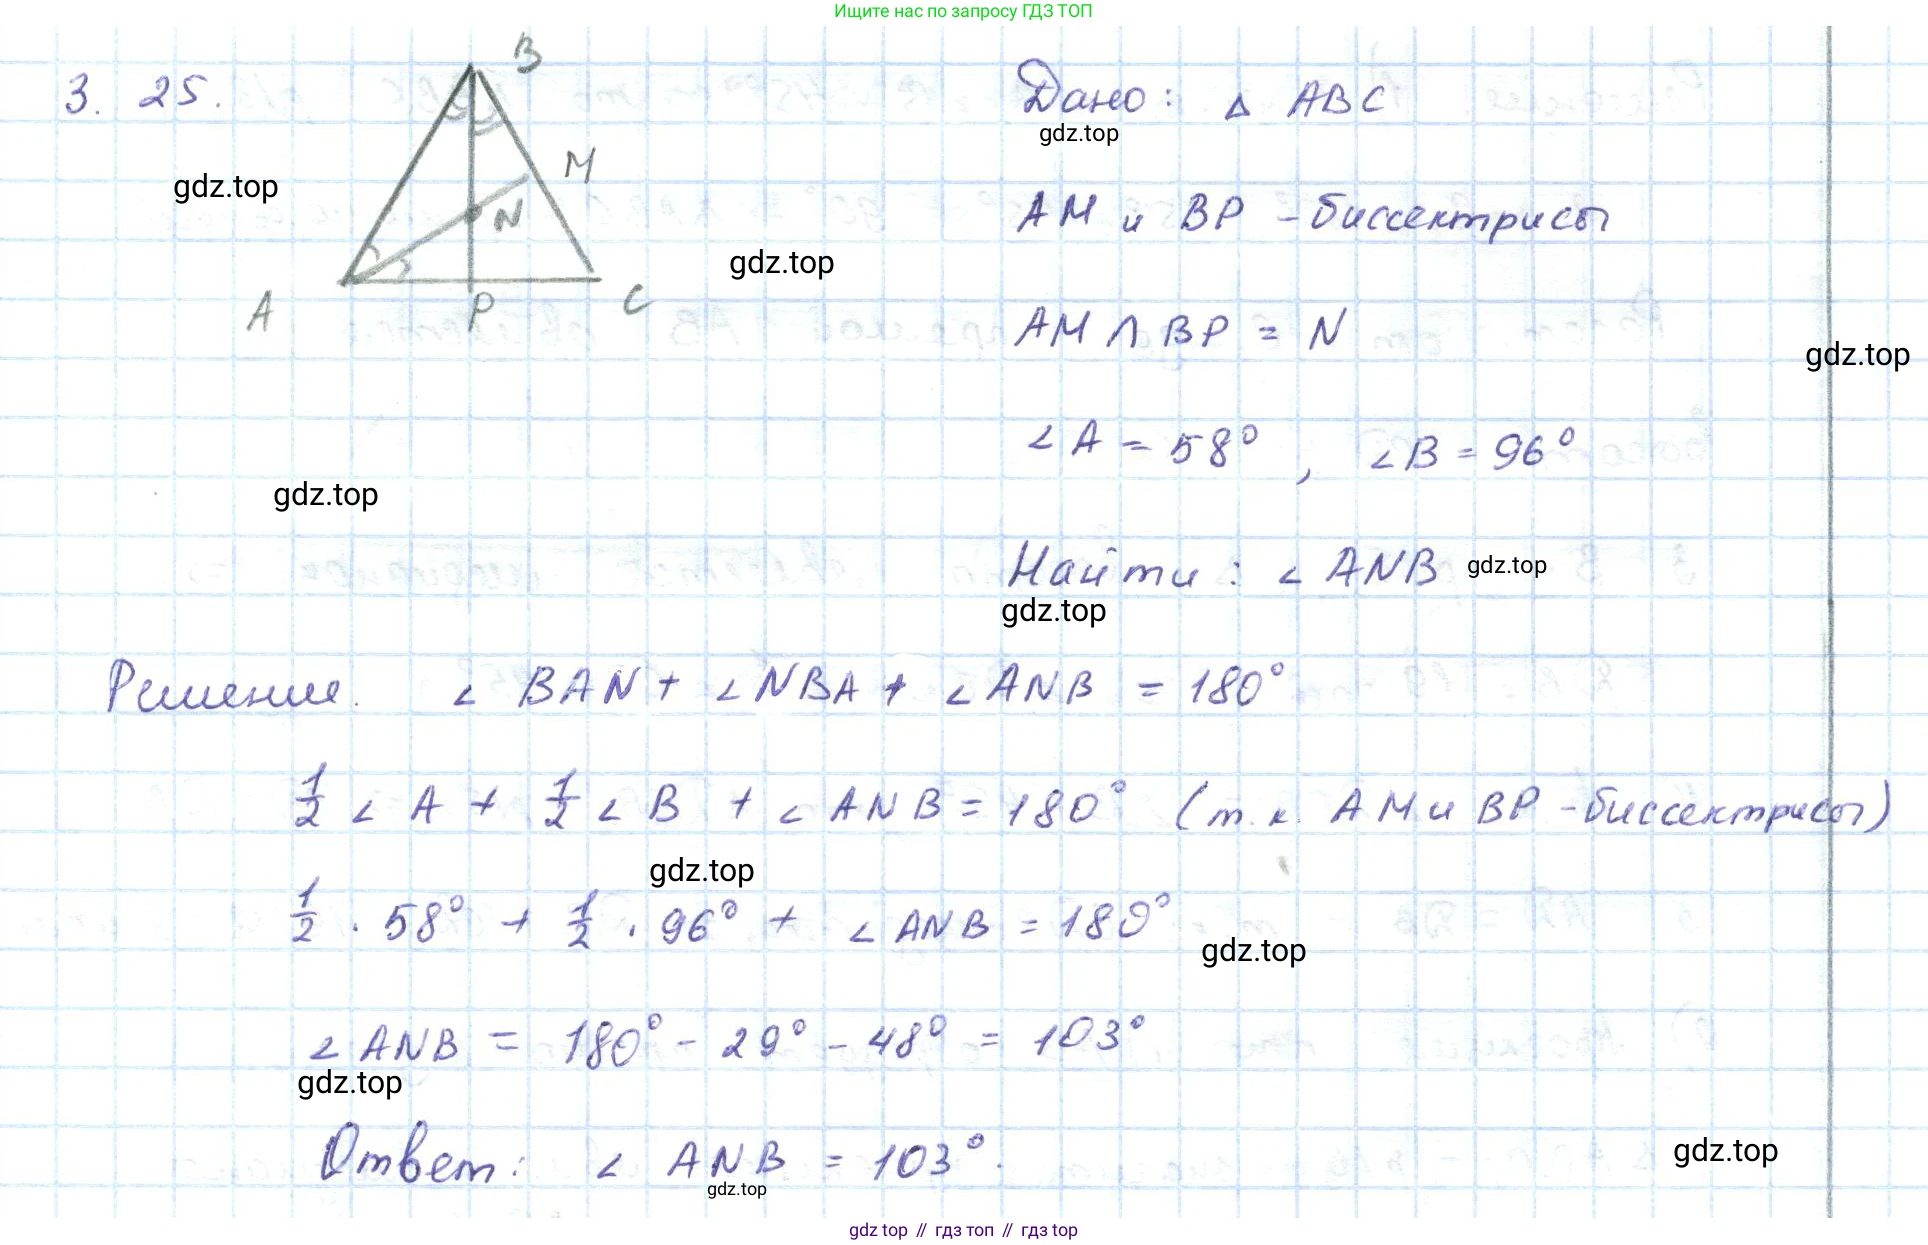 Ищите нас по запросу ГДЗ ТОП
3. 25.
B
M
N
A
P
C
gdz.top
Дано: Δ ABC
gdz.top
AM и BP - биссектрисы
gdz.top
AM ∩ BP = N
gdz.top
∠A = 58°, ∠B = 96°
gdz.top
Найти: ∠ ANB
gdz.top
gdz.top
Решение. ∠ BAN + ∠NBA + ∠ANB = 180°
1/2 ∠ A + 1/2 ∠ B + ∠ ANB = 180° (т.к. AM и BP - биссектрисы)
gdz.top
1/2 · 58° + 1/2 · 96° + ∠ ANB = 180°
gdz.top
∠ ANB = 180° - 29° - 48° = 103°
gdz.top
Ответ: ∠ ANB = 103°.
gdz.top
gdz.top
gdz top // гдз топ // гдз top